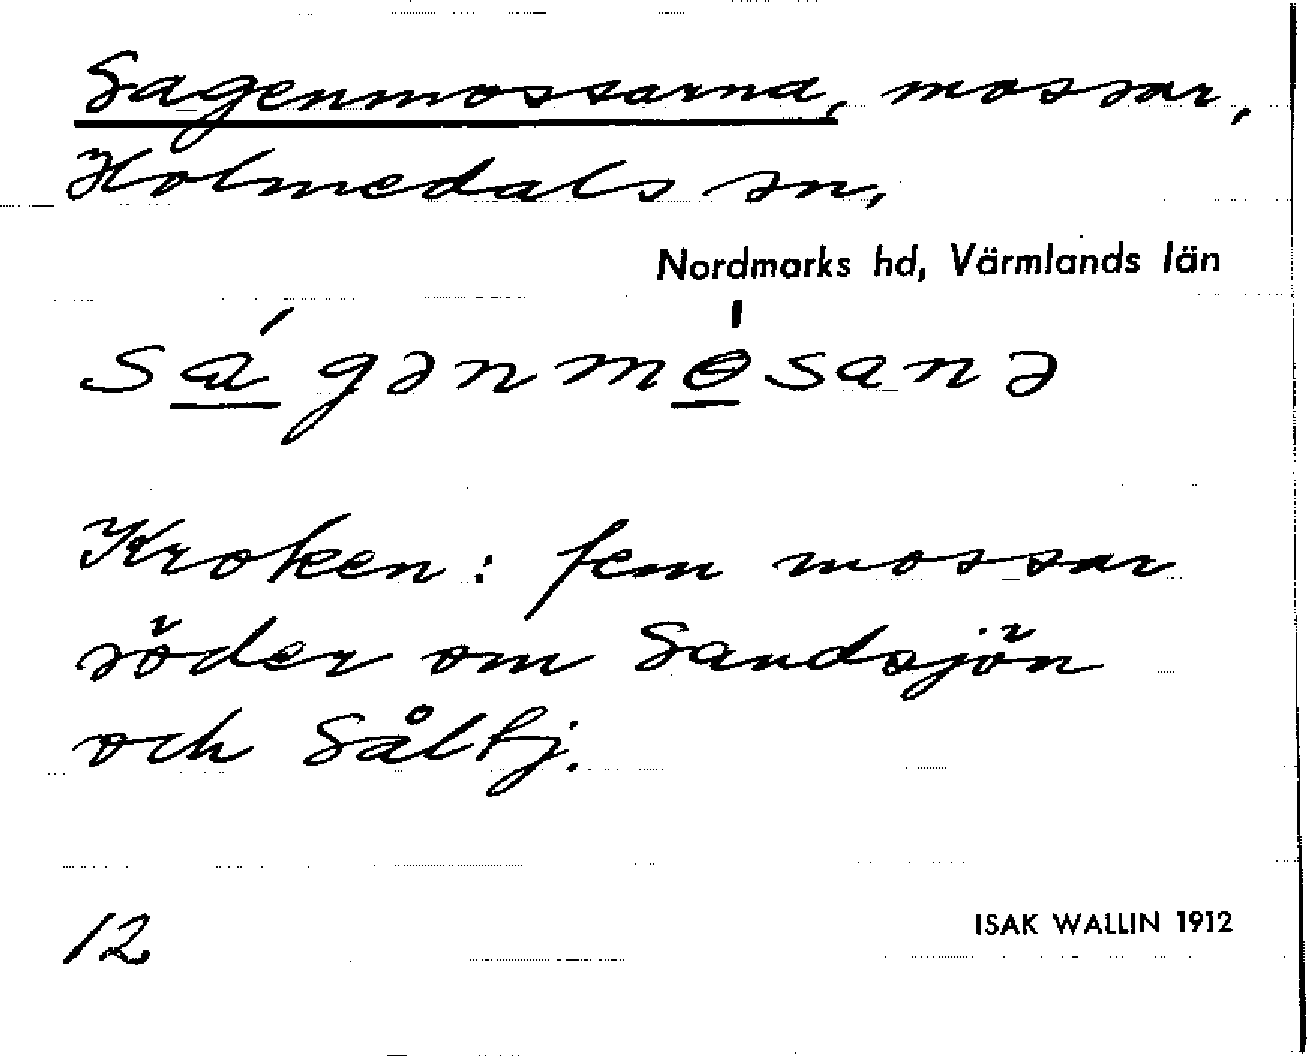 Sagenmossarna, mossar,
Holmedals sn,
Nordmarks hd, Värmlands län
sá̲gənmɵ̲́sanə
Kroken: fem mossar
söder om Sandsjön
och Sålbj.
12
ISAK WALLIN 1912